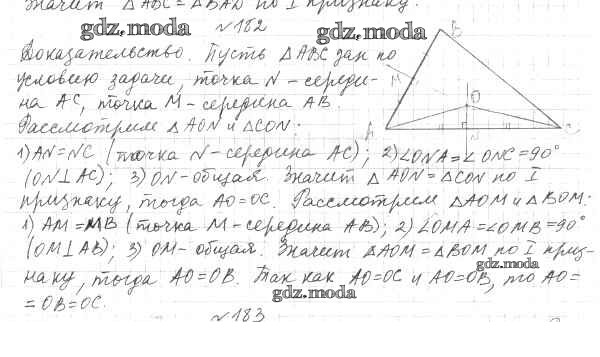 значит △ABC = △BAD по I признаку.
gdz.moda
№182
gdz.moda
Доказательство. Пусть △ABC дан по
условию задачи, точка N – середи-
на AC, точка M – середина AB.
Рассмотрим △AON и △CON:
B
M
O
A
N
C
1) AN=NC (точка N – середина AC); 2) ∠ONA=∠ONC=90°
(ON⊥AC); 3) ON – общая. Значит △AON = △CON по I
признаку, тогда AO=OC. Рассмотрим △AOM и △BOM:
1) AM=MB (точка M – середина AB); 2) ∠OMA=∠OMB=90°
(OM⊥AB); 3) OM – общая. Значит △AOM = △BOM по I приз-
gdz.moda
наку, тогда AO=OB. Так как AO=OC и AO=OB, то AO=
gdz.moda
=OB=OC.
№183